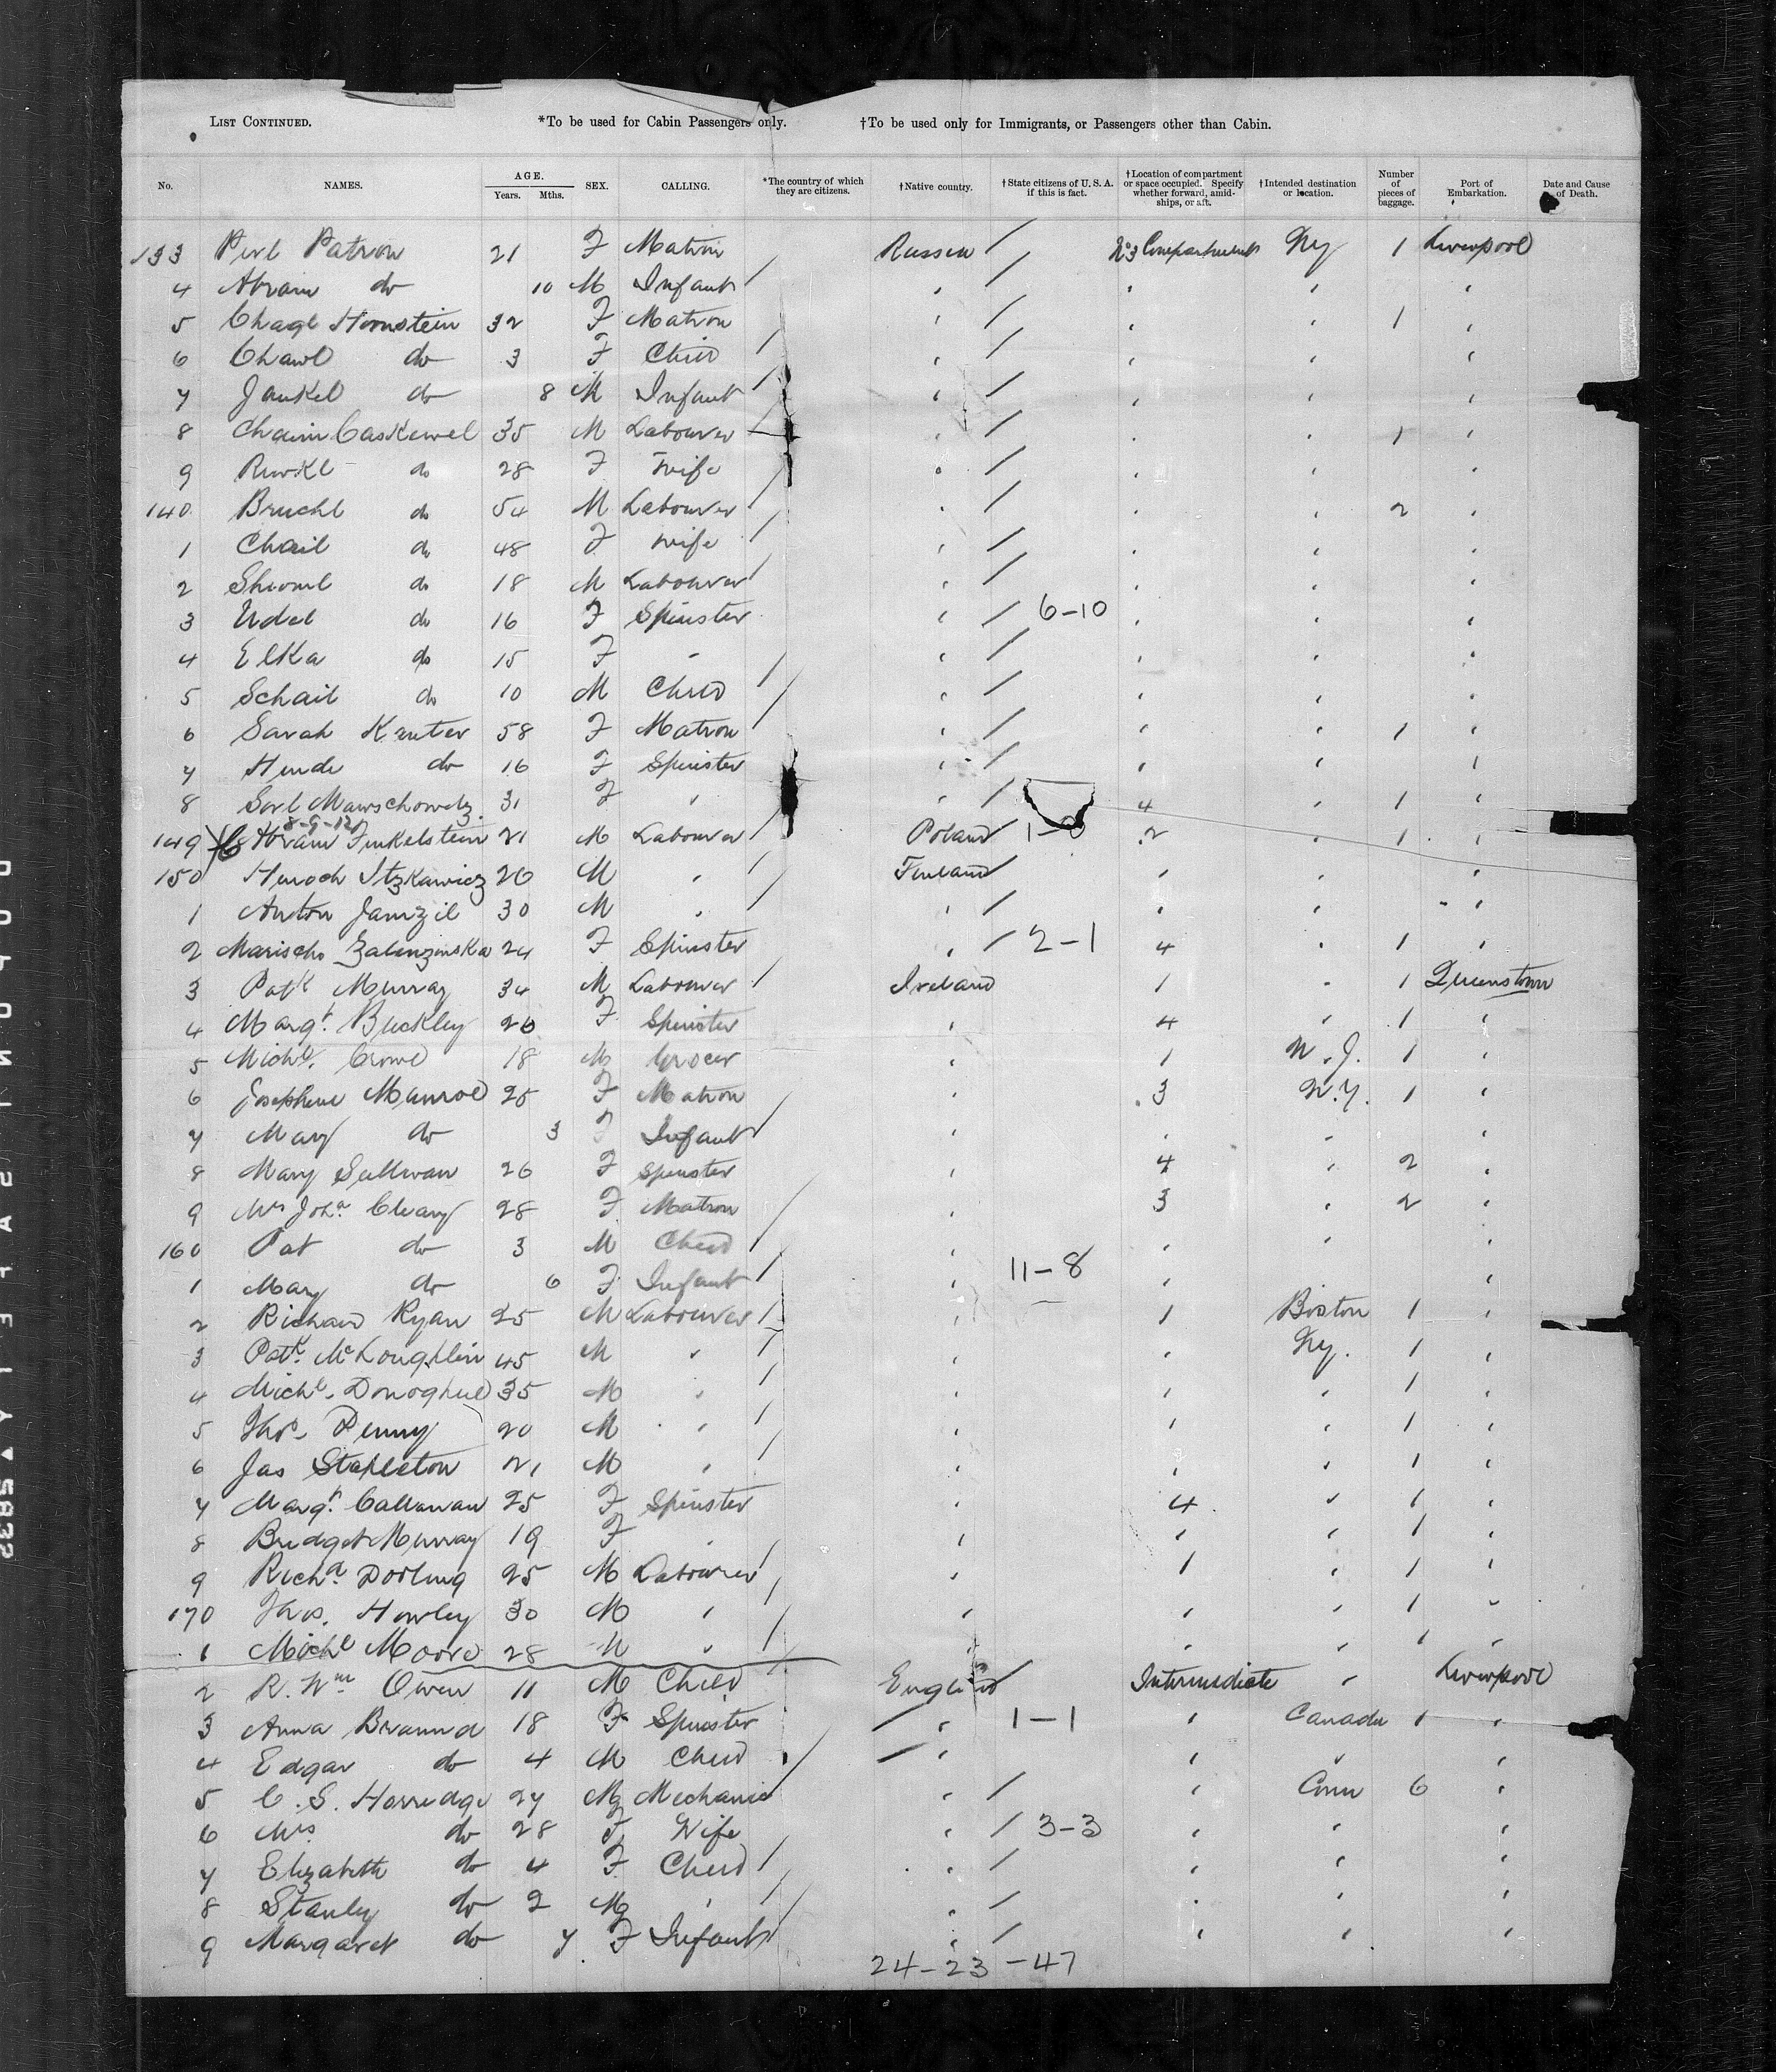 List Continued. *To be used for Cabin Passengers only. †To be used only for Immigrants, or Passengers other than Cabin.
No. NAMES. AGE. Years. Mths. SEX. CALLING. *The country of which they are citizens. †Native country. †State citizens of U. S. A. if this is fact. †Location of compartment or space occupied. Specify whether forward, amidships, or aft. †Intended destination or location. Number of pieces of baggage. Port of Embarkation. Date and Cause of Death.
133 Perl Patron 21 F Matron / Russia / No 3 Compartment NY 1 Liverpool
4 Abram do 10 M Infant / " / " " "
5 Chage Hornstein 32 F Matron " / " " 1 "
6 Chawl do 3 F Child / " / " " "
7 Jankel do 8 M Infant / " / " " "
8 Chaim Caskewel 35 M Labourer / " / " " 1 "
9 Rewkl do 28 F Wife / " / " " "
140 Bruchl do 54 M Labourer / " / " " 2 "
1 Chail do 48 F Wife / " / " " "
2 Shloml do 18 M Labourer / " / " " "
3 Udel do 16 F Spinster " / 6-10 " " "
4 Elka do 15 F " " / " " "
5 Schail do 10 M Child / " / " " "
6 Sarah Kanter 58 F Matron / " / " " 1 "
7 Hende do 16 F Spinster " / " " "
8 Sorl Mawschowelz 31 F " " / 4 " 1 "
8-9-121
149 Abram Finkelstein 21 M Labourer / Poland 2 " 1 "
150 Henoch Itzkawicz 20 M " / Finland " " "
1 Anton Jamzil 30 M " / " / " " "
2 Marischo Zalenzinska 24 F Spinster " / 2-1 4 " 1 "
3 Patk Murray 34 M Labourer / Ireland 1 " 1 Queenstown
4 Margt. Buckley 20 F Spinster " 4 " 1 "
5 Michl. Crowe 18 M Grocer " 1 N.J. 1 "
6 Josephine Munroe 25 F Matron " 3 N.Y. 1 "
7 Mary do 3 F Infant / " " " "
8 Mary Sullivan 26 F Spinster " 4 " 2 "
9 Mrs Joha. Cleary 28 F Matron " 3 " 2 "
160 Pat do 3 M Child / " " " "
1 Mary do 6 F Infant / " 11-8 " "
2 Richard Ryan 25 M Labourer / " 1 Boston 1 "
3 Patk. McLoughlin 45 M " / " " NY. 1 "
4 Michl. Donoghue 35 M " / " " " 1 "
5 Thos. Denny 20 M " / " " " 1 "
6 Jas Stapleton 21 M " / " " " 1 "
7 Margt. Callanan 25 F Spinster " 4 " 1 "
8 Bridget Murray 19 F " " " " 1 "
9 Richd. Dooling 25 M Labourer / " 1 " 1 "
170 Thos. Howley 30 M " / " " " 1 "
1 Michl Moore 28 M " / " " " 1 "
2 R. Wm Owen 11 M Child England / Intermediate " Liverpool
3 Anna Braund 18 F Spinster / " 1-1 " Canada 1 "
4 Edgar do 4 M Child / / " " " "
5 C. S. Horredge 27 M Mechanic / " / " Conn 6 "
6 Mrs do 28 F Wife " / 3-3 " " "
7 Elizabeth do 4 F Child / " / " " "
8 Stanley do 2 M " / " / " " "
9 Margaret do 7 F Infant / " / " " "
24-23-47